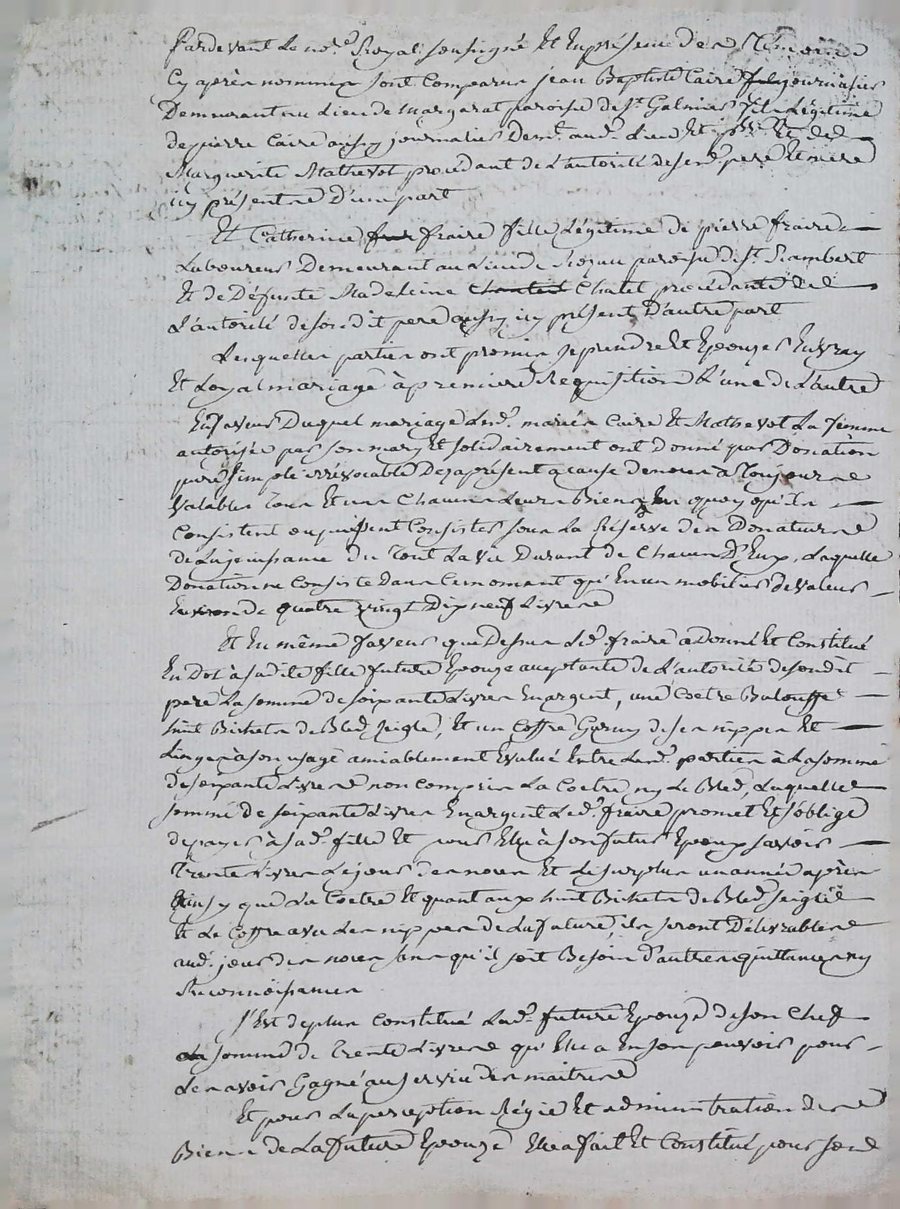 Pardevant Le no.re Royal soussigné Et En présence des Témoins
Cy après nommés sont Comparus jean Baptiste Caire journalier
Demeurant au Lieu de margarat paroisse de St. Galmier fils Légitime
de pierre Caire aussy journalier Demt. aud. Lieu Et psse. Et de
Marguerite Mathevot procédant de L'autorité de sesd. pere Et mere
icy présents D'une part
Et Catherine fraire fille Légitime de pierre fraire
Laboureur Demeurant au Lieu de paroisse de St. Rambert
Et de Défunte Madeleine Chatel procédante de
L'autorité de son dit pere aussy icy présent D'autre part
Lesquelles parties ont promis se prendre Et Epouzer En vray
Et Loyal mariage à premiere Requisition L'une de L'autre
En faveur Duquel mariage Lesd. mariés Caire Et Mathevot La femme
autorisée par son mary Et solidairement ont donné par Donation
pure simple irrévocable Dez aprésent a cause de noces a Toujours
Valable Tous Et un Chacuns Leurs Biens En quoy qu'ils
Consistent ou puissent Consister sous La Réserve des Donateurs
de La jouissance du Tout La vie Durant de Chacun D'Eux, Laquelle
Donation ne Consiste Dans Ce moment qu'En un mobilier de valeur
Environ de quatre vingt Dix neuf Livres
Et En même faveur que Dessus Led. fraire a Donné Et Constitué
En Dot à sa dite fille future Epouze acceptante de L'autorité de son dit
pere La somme de soixante Livres En argent, une Coetre Balouffe
huit Bichets de Bled seigle, Et un Coffre Garny de ses nippes Et
Linges à son usage amiablement Evalué Entre Lesd. parties à La somme
de soixante Livres non Compris La Coetre ny Le Bled, Laquelle
somme de soixante Livres En argent Led. fraire promet Et s'oblige
de payer à sad. fille Et pour Elle à son futur Epoux savoir
Trente Livres Le jour des noces Et Le surplus un année après
Ainsy que La Coetre Et quant aux huit Bichets de Bled seigle
Et Le Coffre avec Les nippes de La future, ils seront Délivrables
aud. jour des noces sans qu'il soit Besoin d'autres quittances ny
Reconnoissances
S'Est de plus Constitué Lad. future Epouze de son Chef
La somme de Trente Livres qu'Elle a En son pouvoir pour
Les avoir Gagné au service des maitres
Et pour La perception Régie Et administration des
Biens de La future Epouze Elle a fait Et Constitué pour son